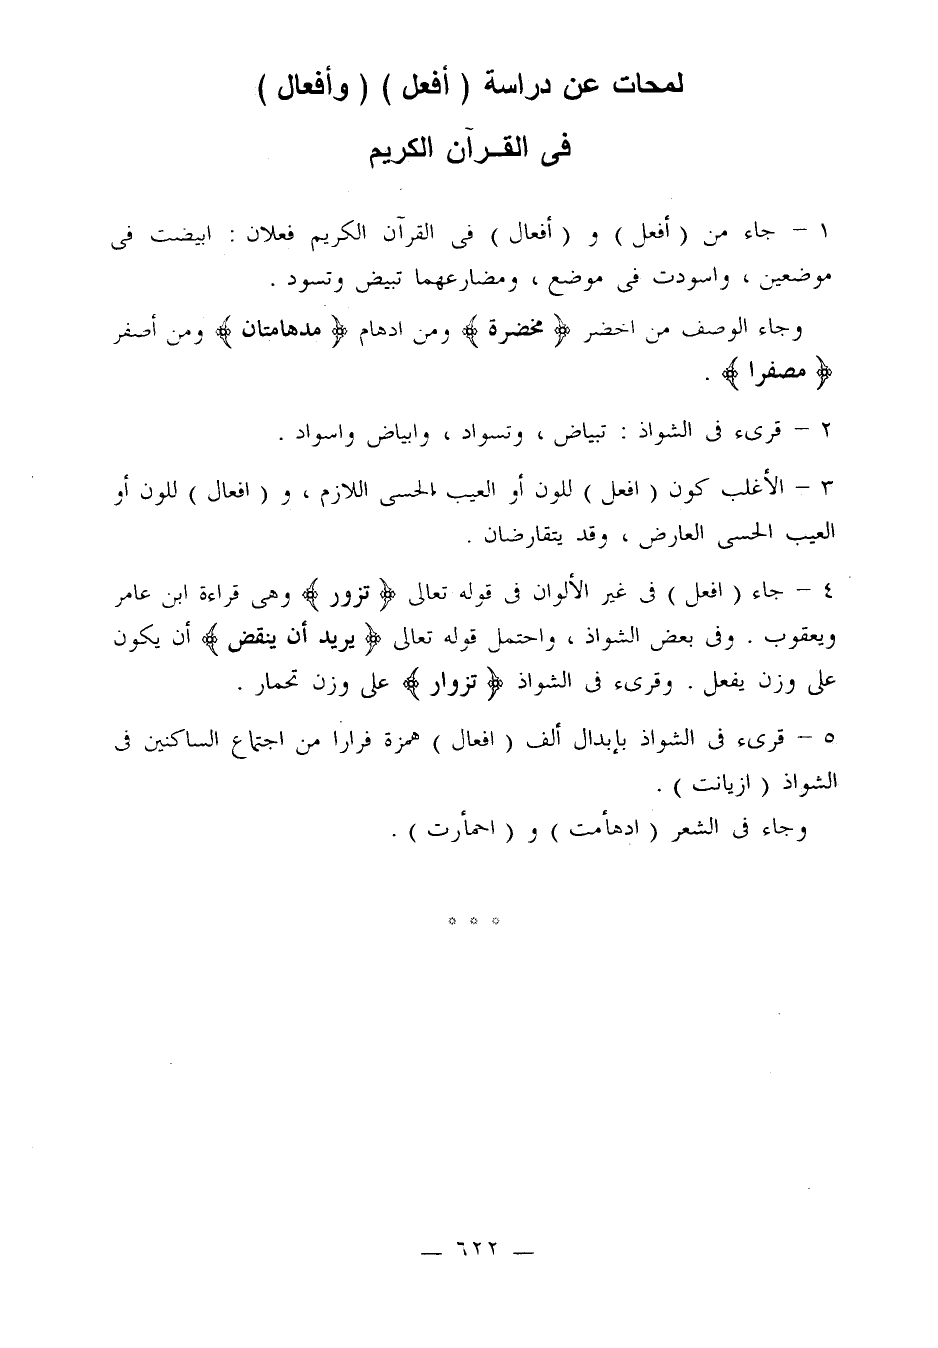 لمحات عن دراسة ( أفعل ) ( وأفعال )
فى القـرآن الكريم
١ – جاء من ( أفعل ) و ( أفعال ) فى القرآن الكريم فعلان : ابيضت فى
موضعين ، واسودت فى موضع ، ومضارعهما تبيض وتسود .
وجاء الوصف من اخضر ﴿ مخضرة ﴾ ومن ادهام ﴿ مدهامتان ﴾ ومن أصفر
﴿ مصفرا ﴾ .
٢ – قرىء فى الشواذ : تبياض ، وتسواد ، وابياض واسواد .
٣ – الأغلب كون ( افعل ) للون أو العيب الحسى اللازم ، و ( افعال ) للون أو
العيب الحسى العارض ، وقد يتقارضان .
٤ – جاء ( افعل ) فى غير الألوان فى قوله تعالى ﴿ تزور ﴾ وهى قراءة ابن عامر
ويعقوب . وفى بعض الشواذ ، واحتمل قوله تعالى ﴿ يريد أن ينقض ﴾ أن يكون
على وزن يفعل . وقرىء فى الشواذ ﴿ تزوار ﴾ على وزن تحمار .
٥ – قرىء فى الشواذ بإبدال ألف ( افعال ) همزة فرارا من اجتماع الساكنين فى
الشواذ ( ازيانت ) .
وجاء فى الشعر ( ادهأمت ) و ( احمأرت ) .
* * *
— ٦٢٢ —